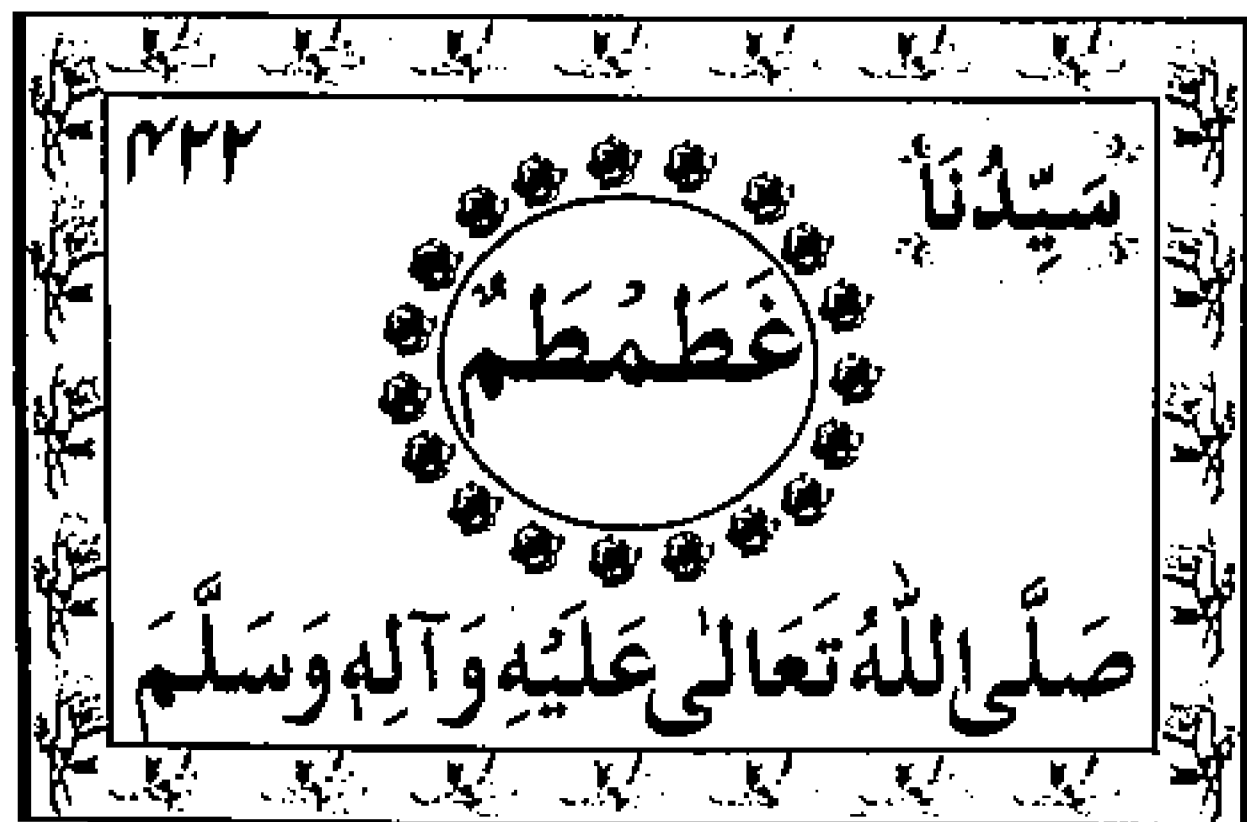 سَيِّدُنَا ٣٢٢
غَطَمْطَمٌ
صَلَّى اللّٰهُ تَعَالىٰ عَلَيْهِ وَآلِهٖ وَسَلَّمَ